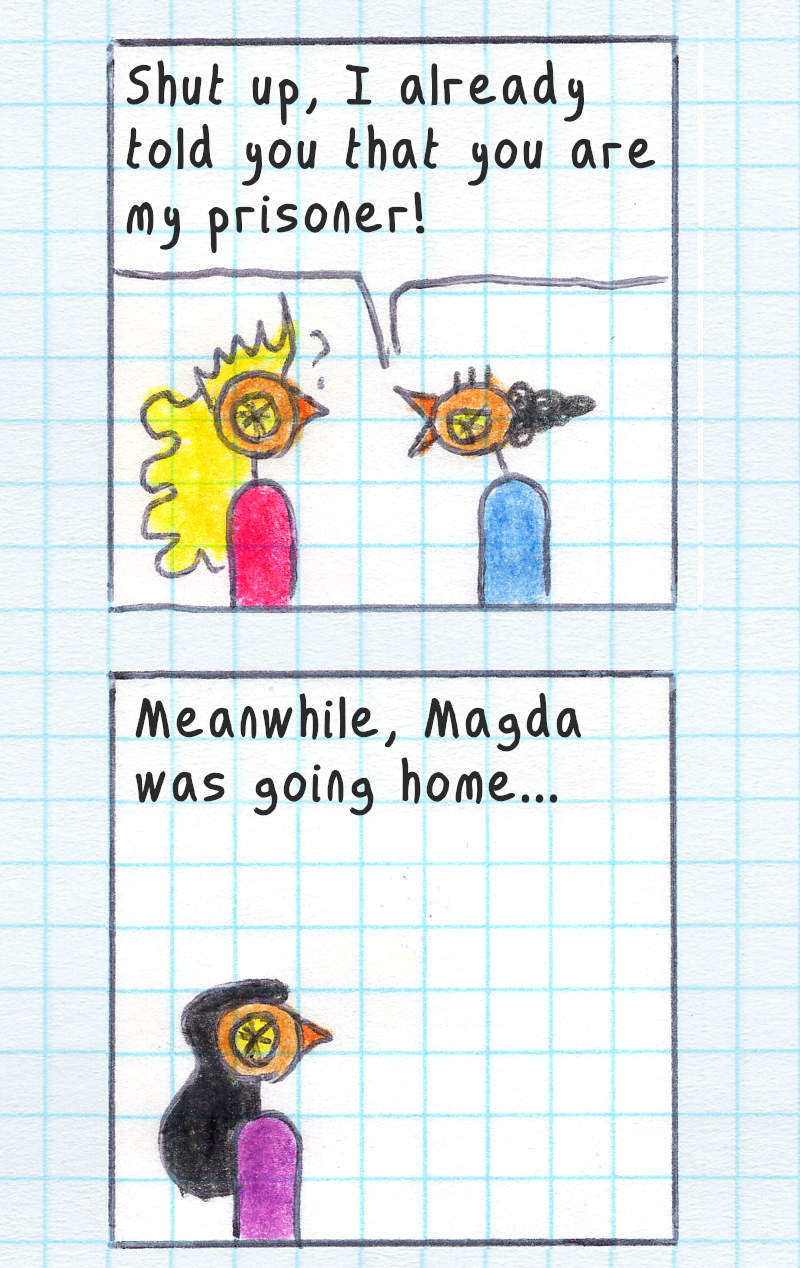 Shut up, I already
told you that you are
my prisoner!
?
Meanwhile, Magda
was going home...